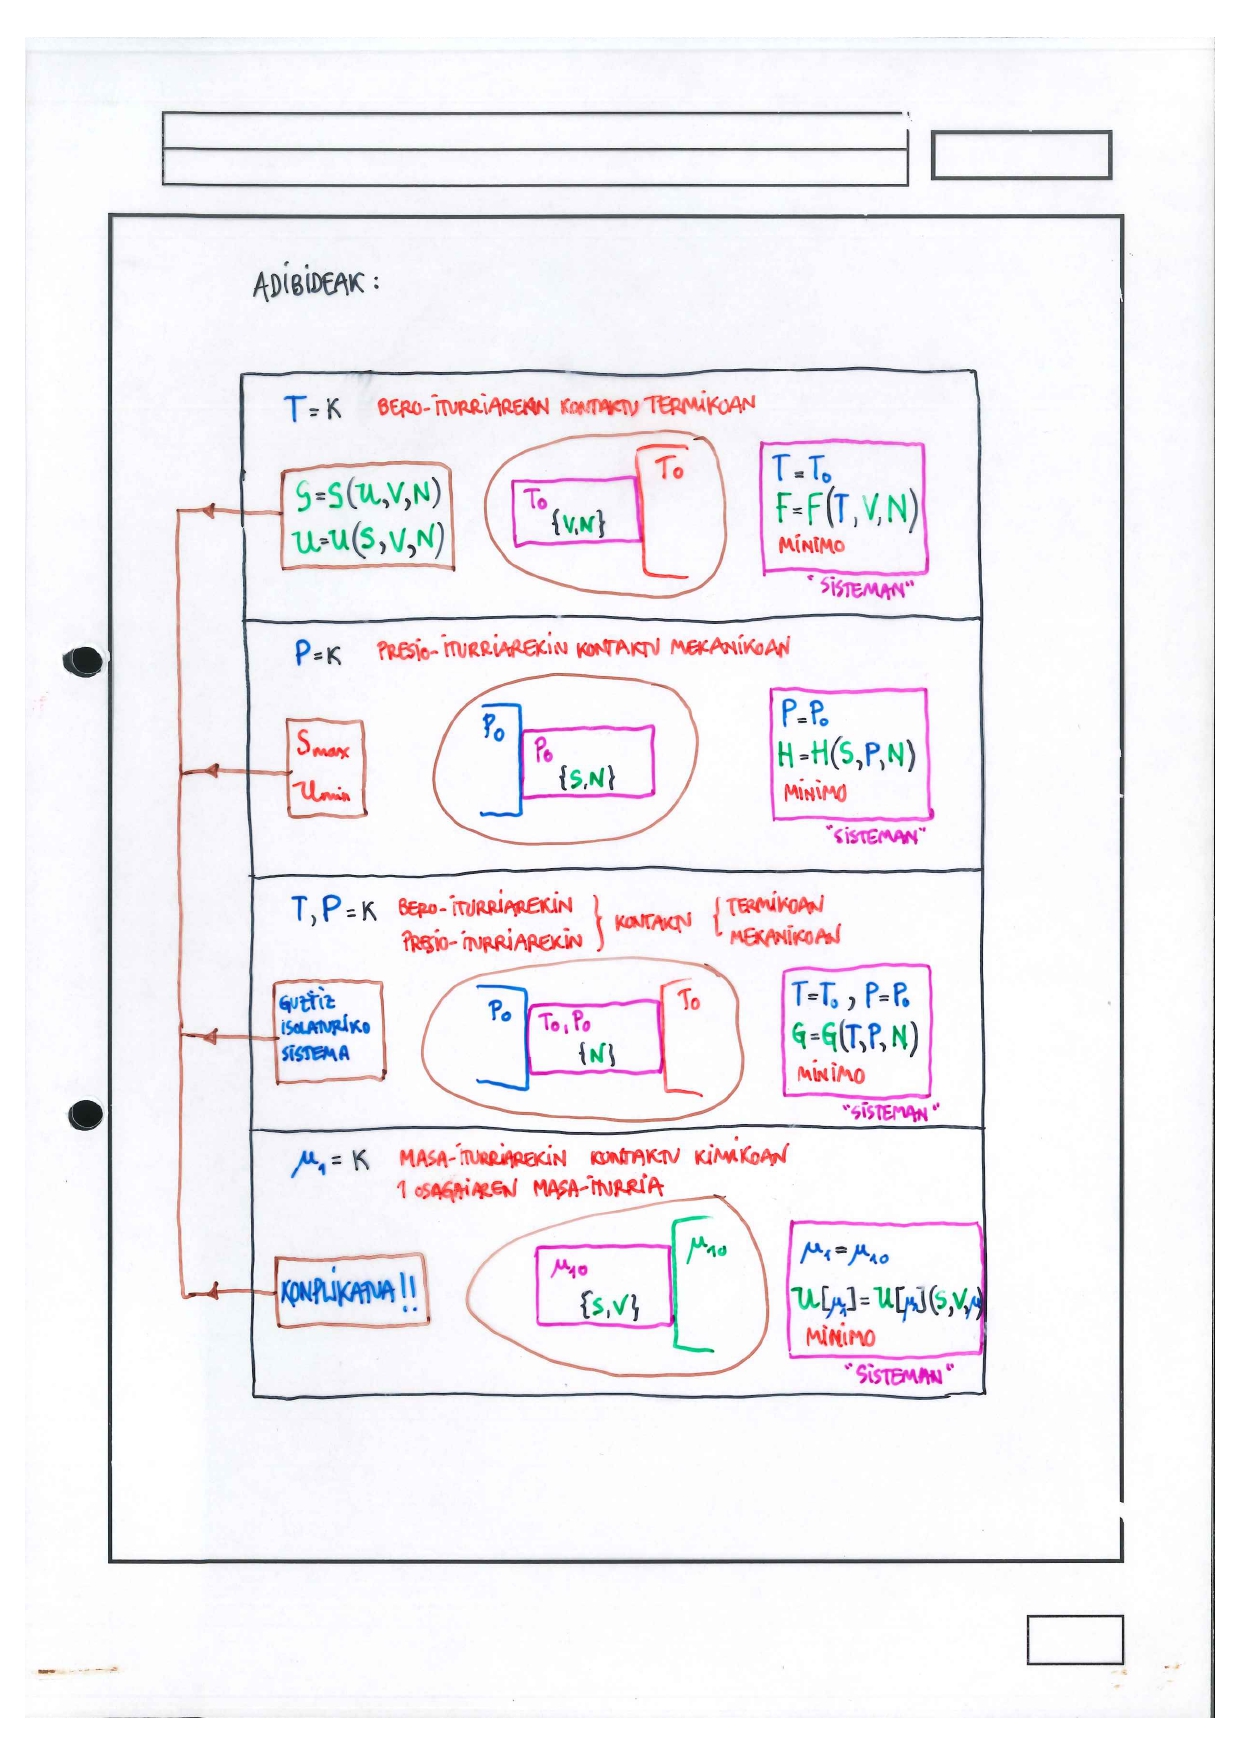 ADIBIDEAK:
T=K BERO-ITURRIAREKIN KONTAKTU TERMIKOAN
S=S(U,V,N)
U=U(S,V,N)
T₀
{V,N}
T₀
T=T₀
F=F(T,V,N)
MINIMO
"SISTEMAN"
P=K PRESIO-ITURRIAREKIN KONTAKTU MEKANIKOAN
Smax
Umin
P₀
P₀
{S,N}
P=P₀
H=H(S,P,N)
MINIMO
"SISTEMAN"
T,P=K BERO-ITURRIAREKIN } KONTAKTU { TERMIKOAN
PRESIO-ITURRIAREKIN MEKANIKOAN
GUZTIZ
ISOLATURIKO
SISTEMA
P₀
T₀,P₀
{N}
T₀
T=T₀, P=P₀
G=G(T,P,N)
MINIMO
"SISTEMAN"
μ₁=K MASA-ITURRIAREKIN KONTAKTU KIMIKOAN
1 OSAGAIAREN MASA-ITURRIA
KONPLIKATUA!!
μ₁₀
{S,V}
μ₁₀
μ₁=μ₁₀
U[μ₁]=U[μ₁](S,V,μ)
MINIMO
"SISTEMAN"